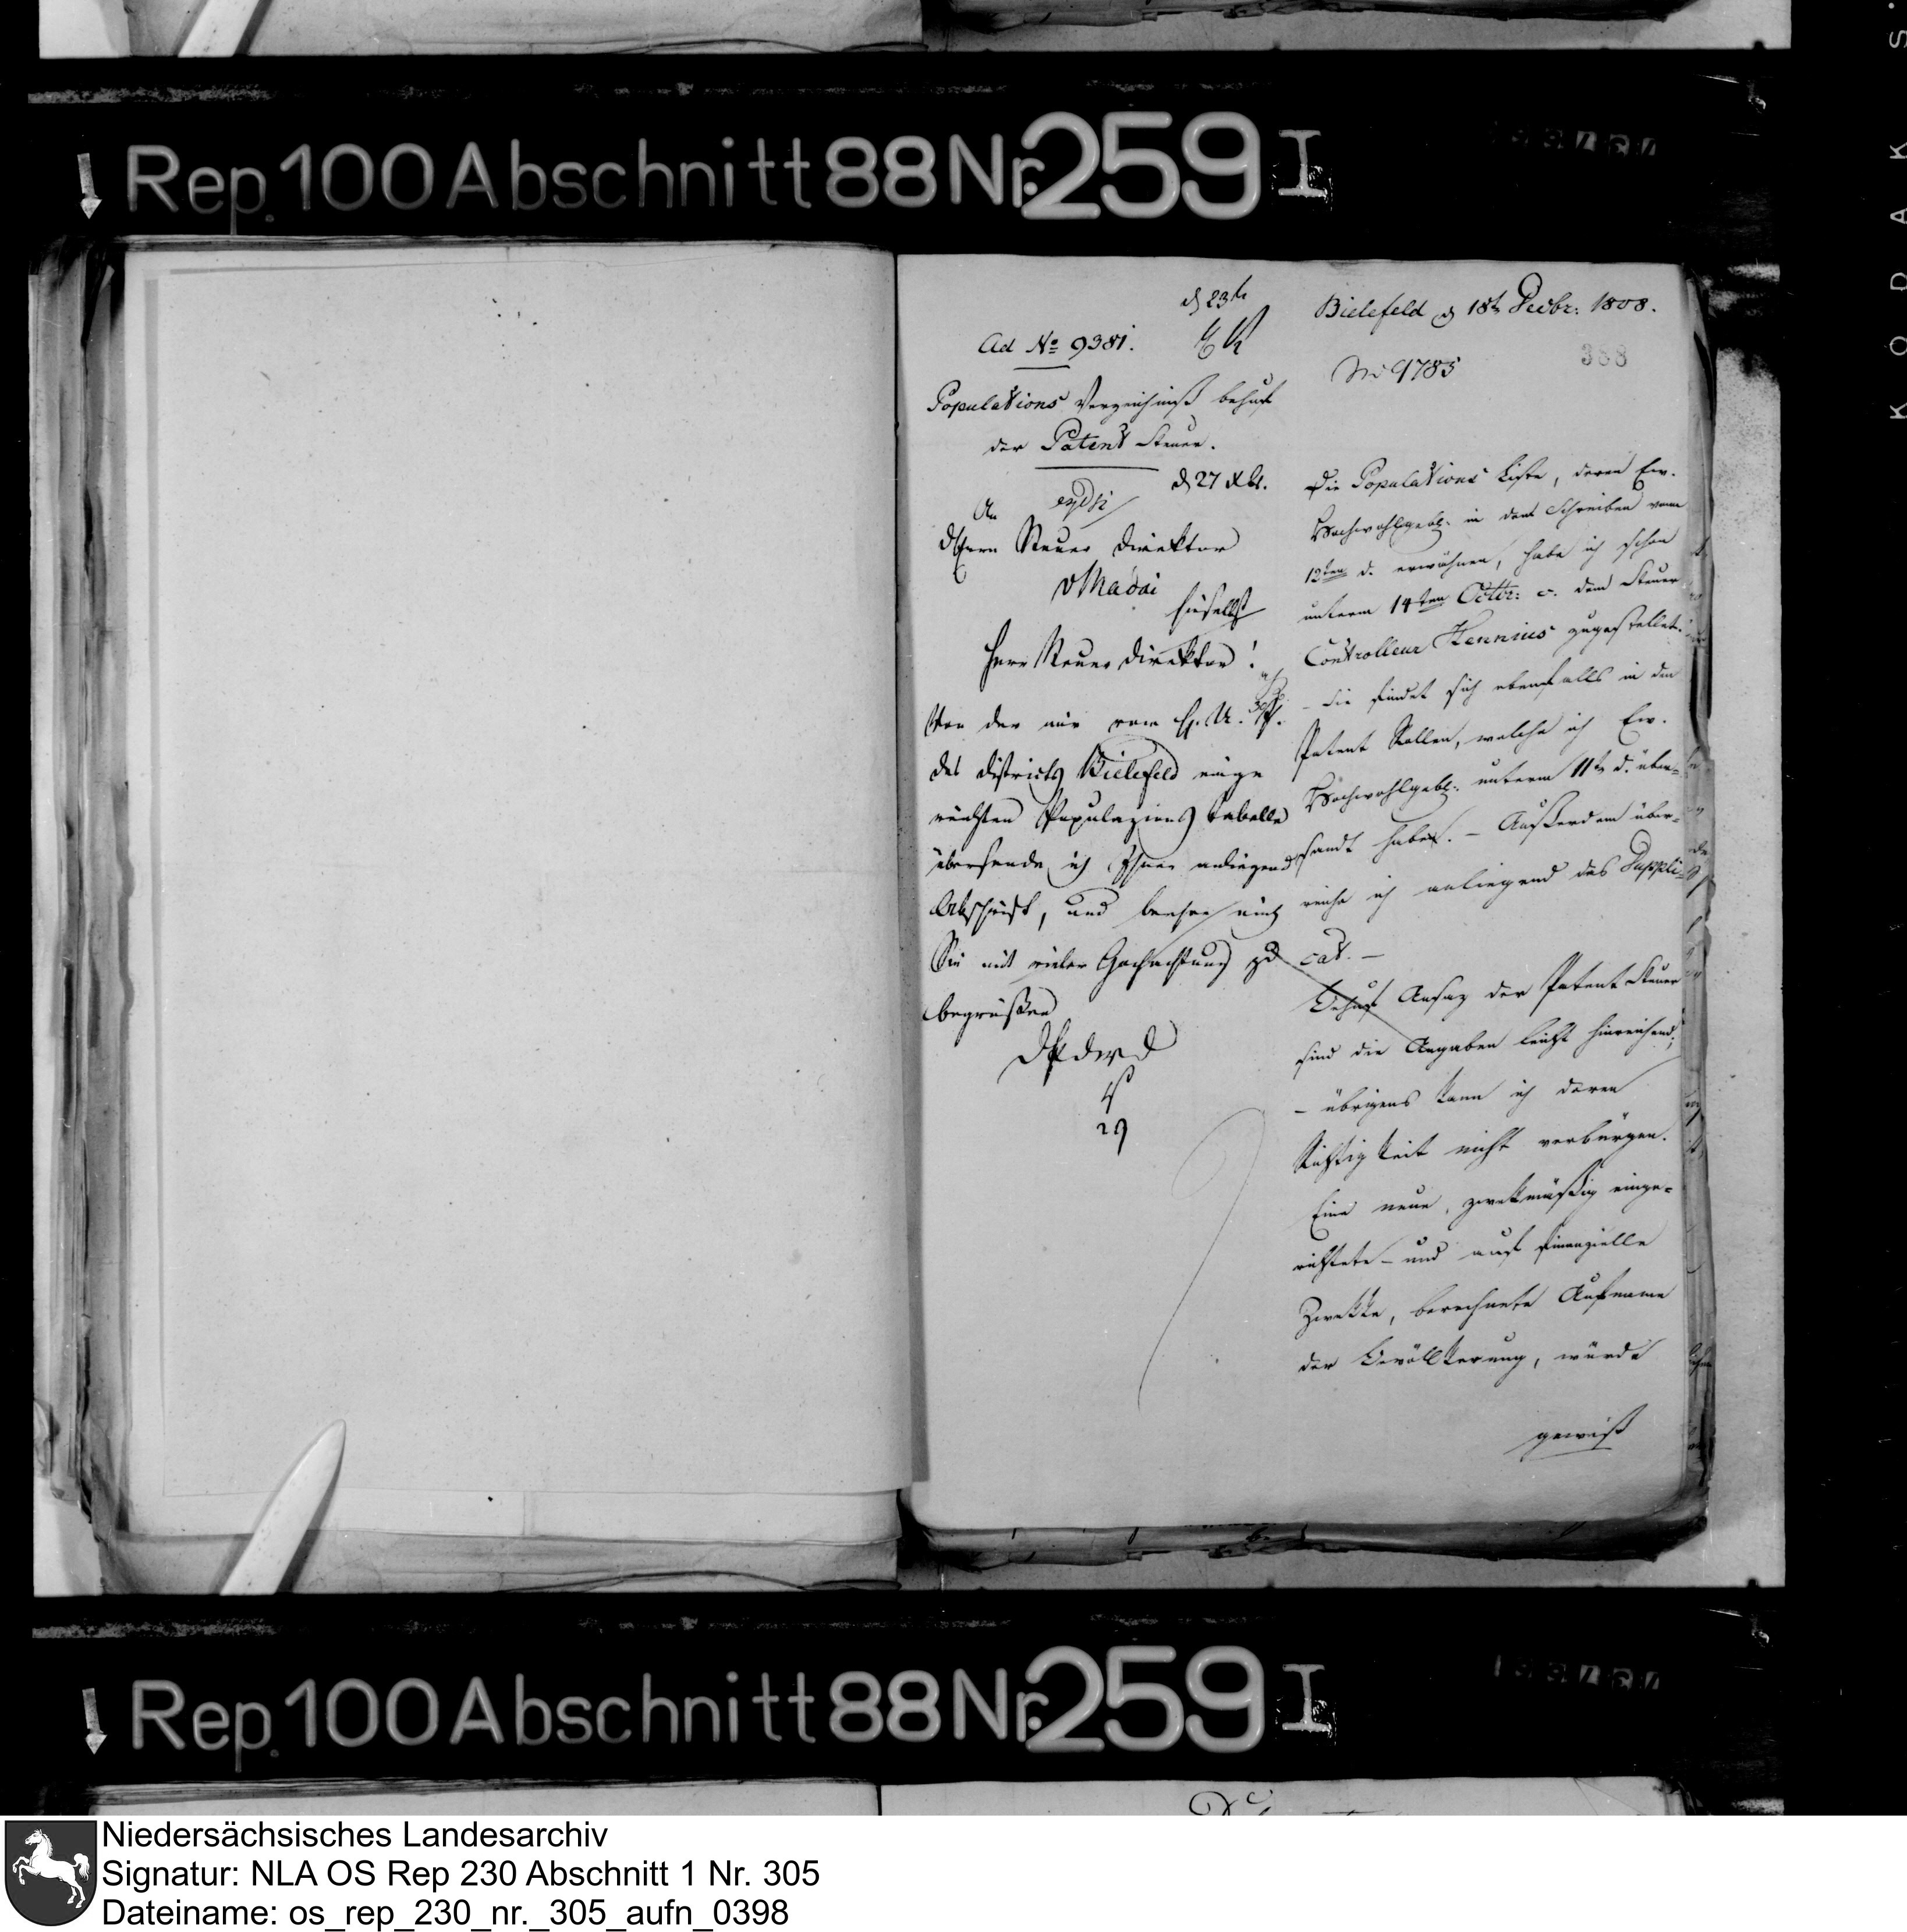 Rep. 100 Abschnitt 88 Nr. 259 I
d 23t
Ad No 9381.
Populations Verzeichniß behuf
der Patent Steuer.
d 27 Xbr.
An
Herrn Steuer Direktor
v Madai
hieselbst
Herr Steuer Direktor!
Von der mir vom H. U. Pf.
des Districts Bielefeld einge
reichten Populazions tabelle
übersende ich Ihnen anliegend
Abschrift, und beehre mich
Sie mit vieler Hochachtung zu
begrüßen
29
Bielefeld d 18t Decbr. 1808.
No 9785
388
Die Populations Liste, deren Ew.
Hochwohlgebl. in dem Schreiben vom
12ten d. erwähnen, habe ich schon
unterm 14ten Octbr. c. dem Steuer
Controlleur Hennius zugestellet.
– Sie findet sich ebenfalls in den
Patent Rollen, welche ich Ew.
Hochwohlgebl. unterm 11t d. über-
sandt habe. – Außerdem über-
reiche ich anliegend das Duppli-
cat. –
Behuf Ansaz der Patent Steuer
sind die Angaben leicht hinreichend;
– übrigens kann ich deren
Richtigkeit nicht verbürgen.
Eine neue, zwekmäßig einge-
richtete – und auf finanzielle
Zwekke, berechnete Aufname
der Bevöllkerung, würde
gewiß
Rep. 100 Abschnitt 88 Nr. 259 I
KODAK S.
Niedersächsisches Landesarchiv
Signatur: NLA OS Rep 230 Abschnitt 1 Nr. 305
Dateiname: os_rep_230_nr._305_aufn_0398